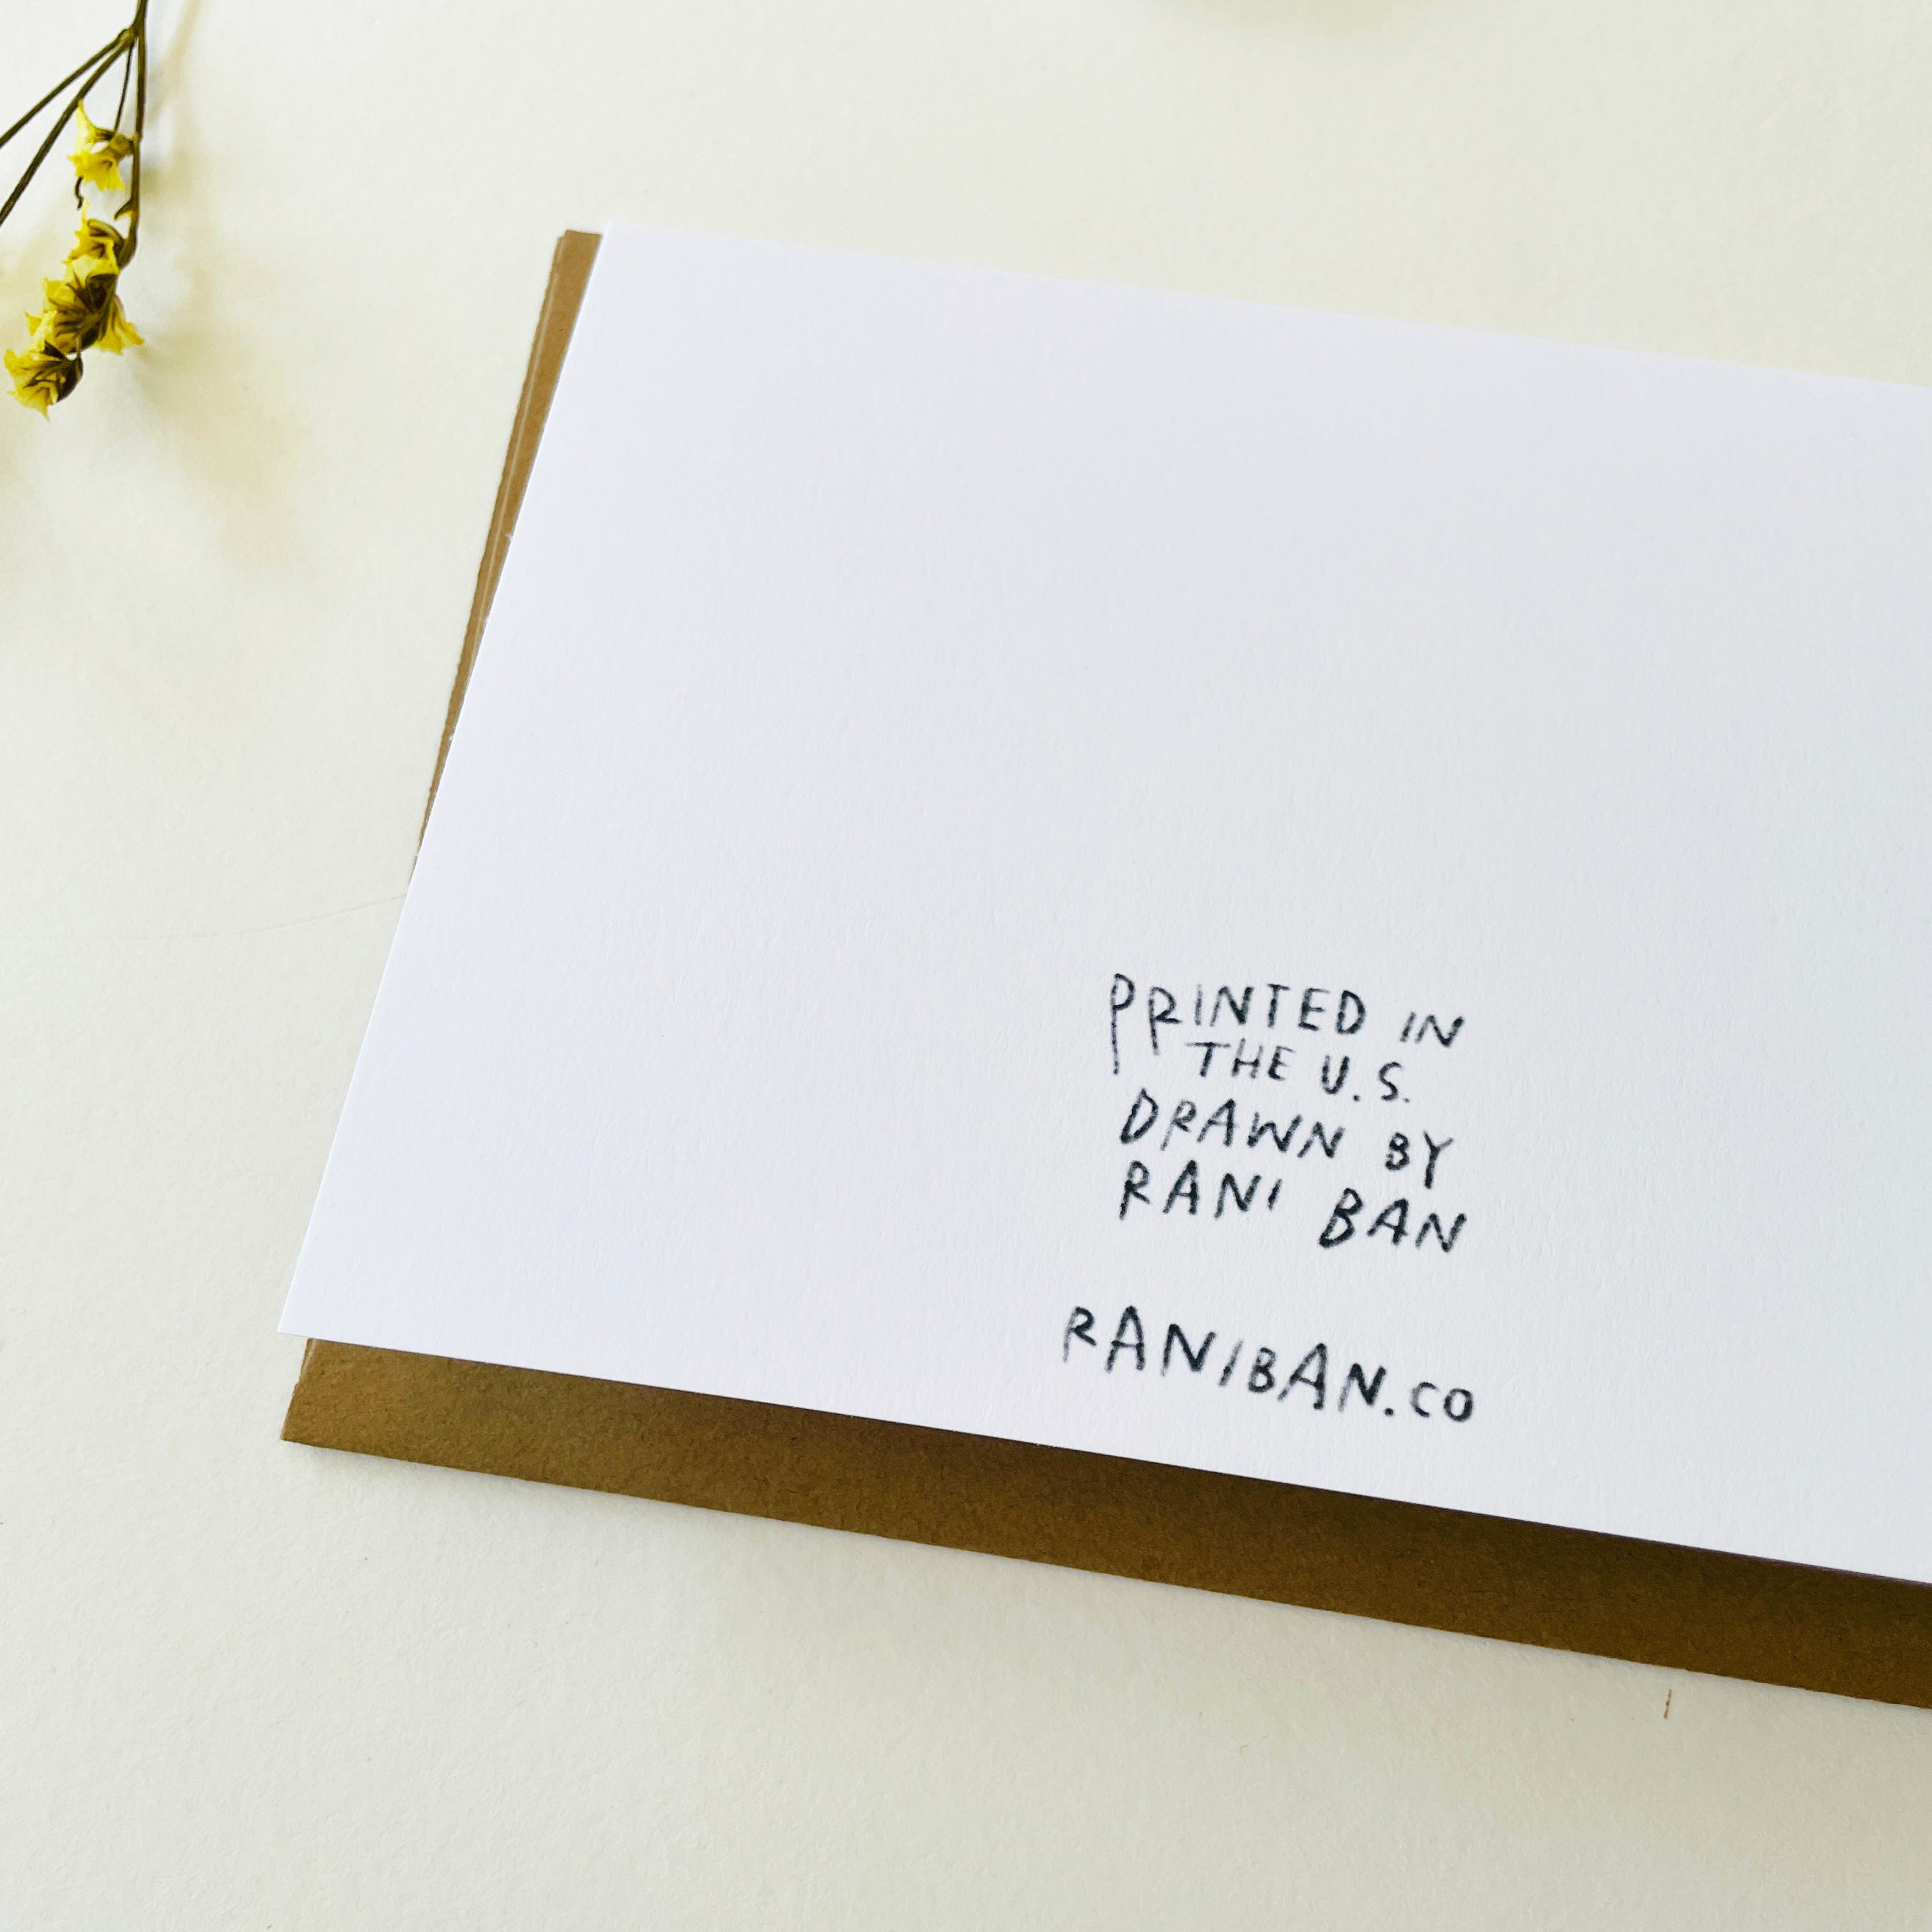 PRINTED IN
THE U.S.
DRAWN BY
RANI BAN
RANIBAN.CO